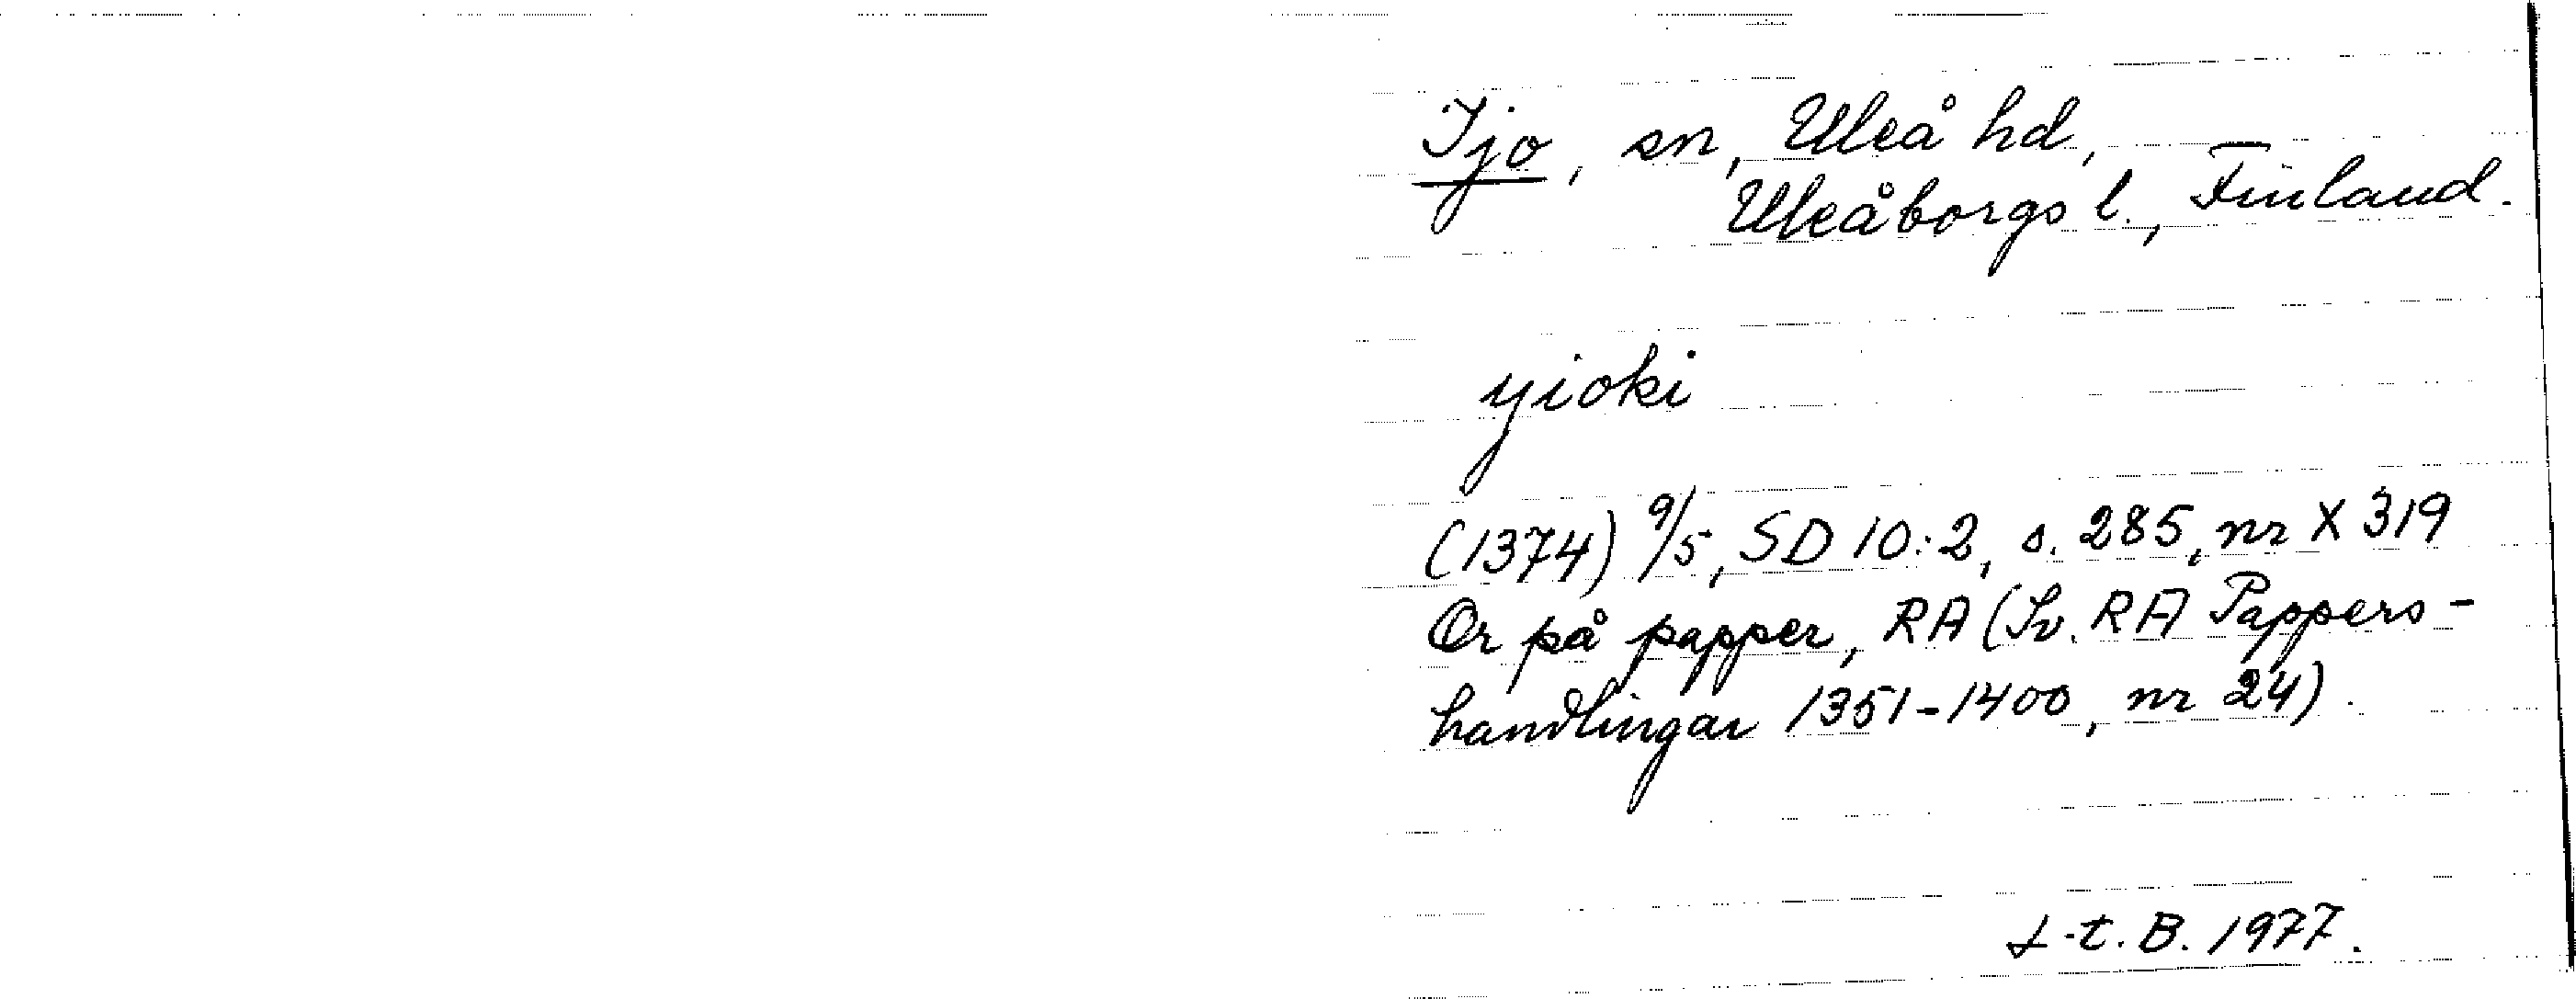 Ijo, sn, Uleå hd,
Uleåborgs l., Finland.
yioki
(1374) 9/5, SD 10:2, s. 285, nr X 319
Or på papper, RA (Sv. RA Pappers-
handlingar 1351-1400, nr 24).
L-t. B. 1977.